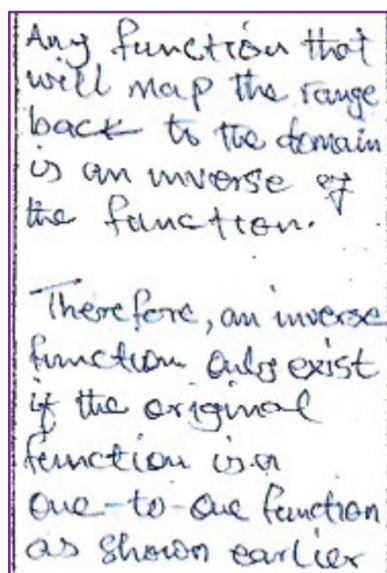 Any function that
will map the range
back to the domain
is an inverse of
the function.
Therefore, an inverse
function only exist
if the original
function is a
one-to-one function
as shown earlier